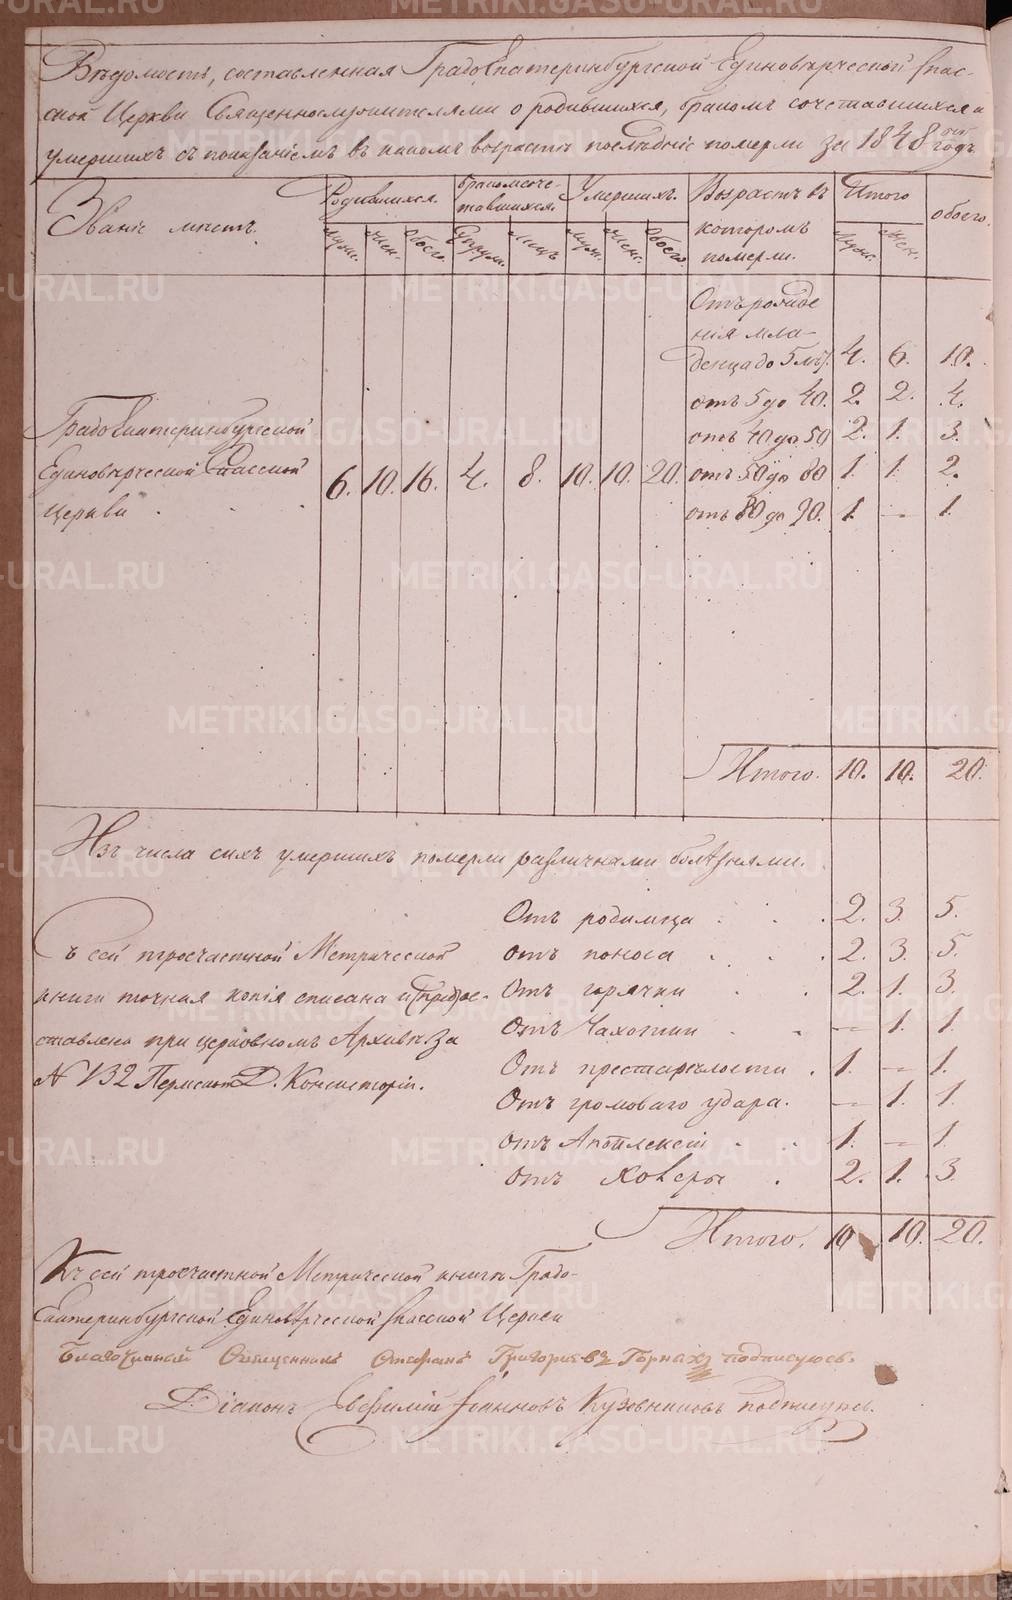 Вѣдомость, составленная Градоекатеринбургской Единовѣрческой Спас-
ской Церкви Священнослужителями о родившихся, бракомъ сочетавшихся и
умершихъ съ показаніемъ въ какомъ возрастѣ послѣдніе померли за 1848 годъ.
Званіе мѣстъ.
Родившихся.
Бракомсоче-
тавшихся.
Умершихъ.
Возрастъ въ
которомъ
померли.
Итого
обоего.
Муж. Жен. Обоего. Супруж. Лицъ Муж. Жен. Обоего. Муж. Жен.
Градоекатеринбургской
Единовѣрческой Спасской
Церкви
6. 10. 16. 4. 8. 10. 10. 20.
Отъ рожде
нія мла-
денца до 5 лѣт. 4. 6. 10.
отъ 5 до 40. 2. 2. 4.
отъ 40 до 50 2. 1. 3.
отъ 50 до 80 1. 1. 2.
отъ 80 до 90. 1. — 1.
Итого. 10. 10. 20.
Изъ числа сихъ умершихъ померли различнами болѣзнями.
Отъ родимца 2. 3. 5.
отъ поноса 2. 3. 5.
Отъ горячки 2. 1. 3.
Отъ Чахотки — 1. 1.
Отъ престарѣлости 1. — 1.
Отъ громоваго удара. — 1. 1.
Отъ Апоплексіи 1. — 1.
Отъ Холеры 2. 1. 3.
Итого. 10 10. 20.
Съ сей троечастной Метрической
книги точная копія списана и
ставлена при церковномъ Архивѣ за
N 132 Пермской Д. Консисторіи.
Къ сей троечастной Метрической книгѣ Градо-
Екатеринбургской Единовѣрческой Спасской Церкви
Благочинный Священникъ Стефанъ Григорьевъ Горныхъ подписуюсь.
Діаконъ Евфимій Іоанновъ Кузовниковъ подписуюсь.
METRIKI.GASO-URAL.RU